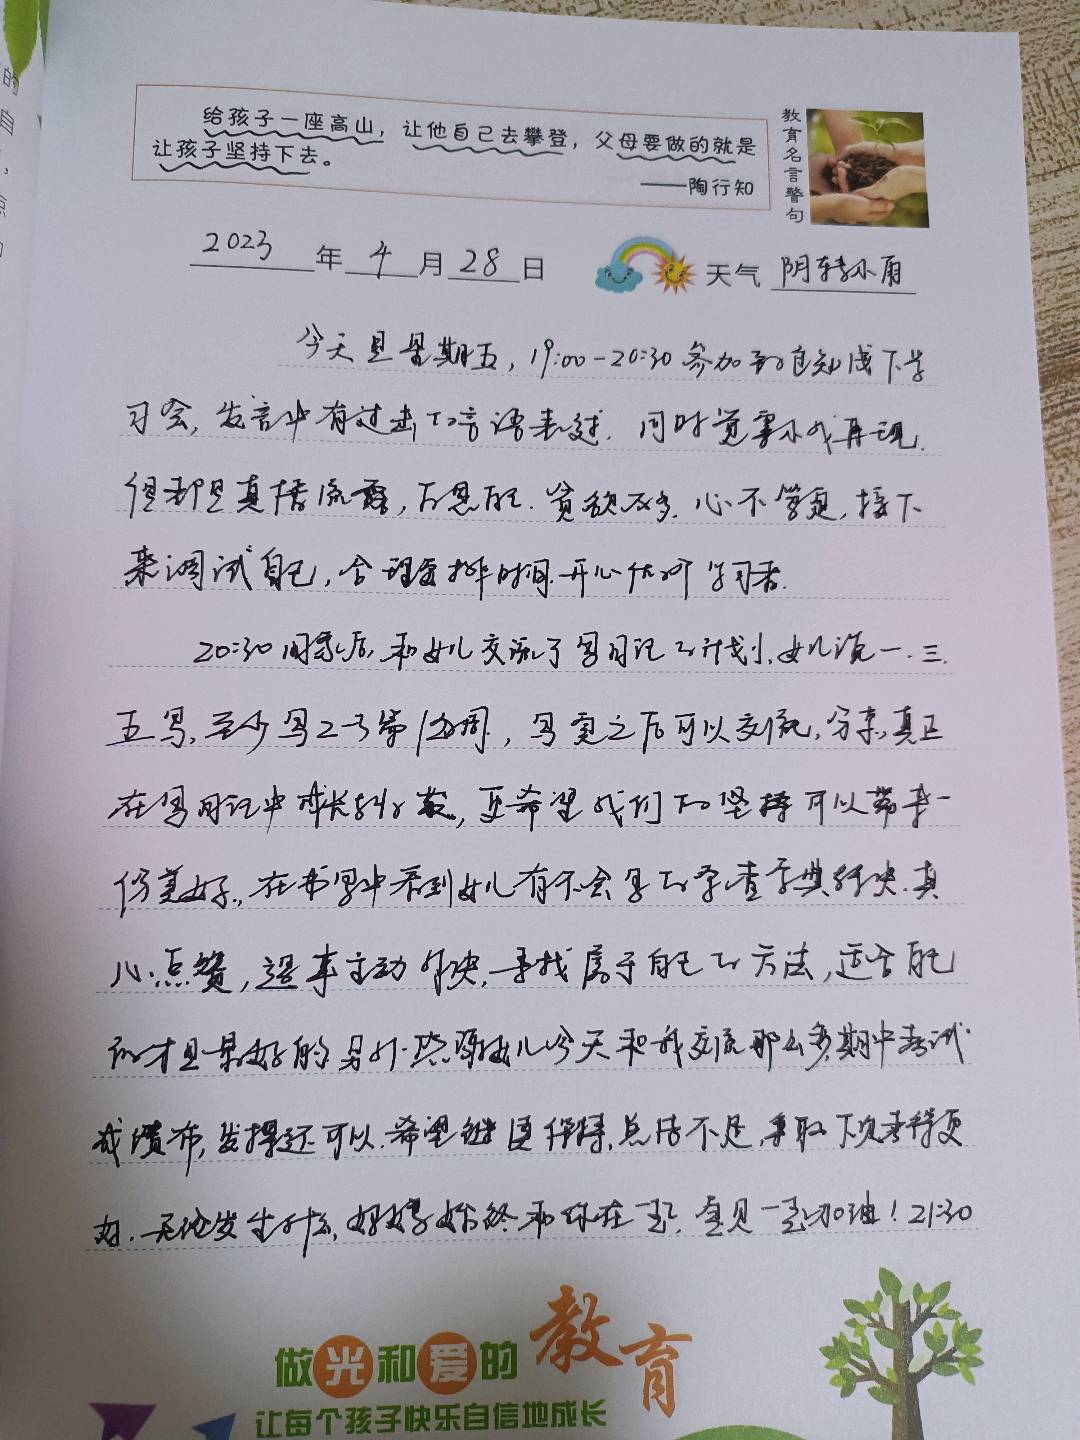 给孩子一座高山，让他自己去攀登，父母要做的就是
让孩子坚持下去。
——陶行知
教育名言警句
2023年4月28日 天气 阴转小雨
今天是星期五，19:00-20:30参加到线下学
习会，发言中有过去的言语表述，同时觉察小我再现，
但都是真情流露，贪欲太多，心不笃定，接下
来调试自己，合理安排时间，开心学习者。
20:30回家后，和女儿交流了写日记的计划，女儿说一、三、
五写，至少写2-3篇/每周，写完之后可以交流，分享，真正
在写日记中成长，更希望我们的坚持可以带来一
份美好，在书写中看到女儿有不会写的字，查字典解决，真
心点赞，遇事主动解决，寻找属于自己的方法，适合自己
的才是最好的，另外感谢女儿今天和我交流那么多，期中考试
成绩公布，发挥还可以，希望继续保持，总结不足，争取下次考得更
好，无论发生什么，妈妈始终和你在一起，一起加油！21:30
做光和爱的教育
让每个孩子快乐自信地成长